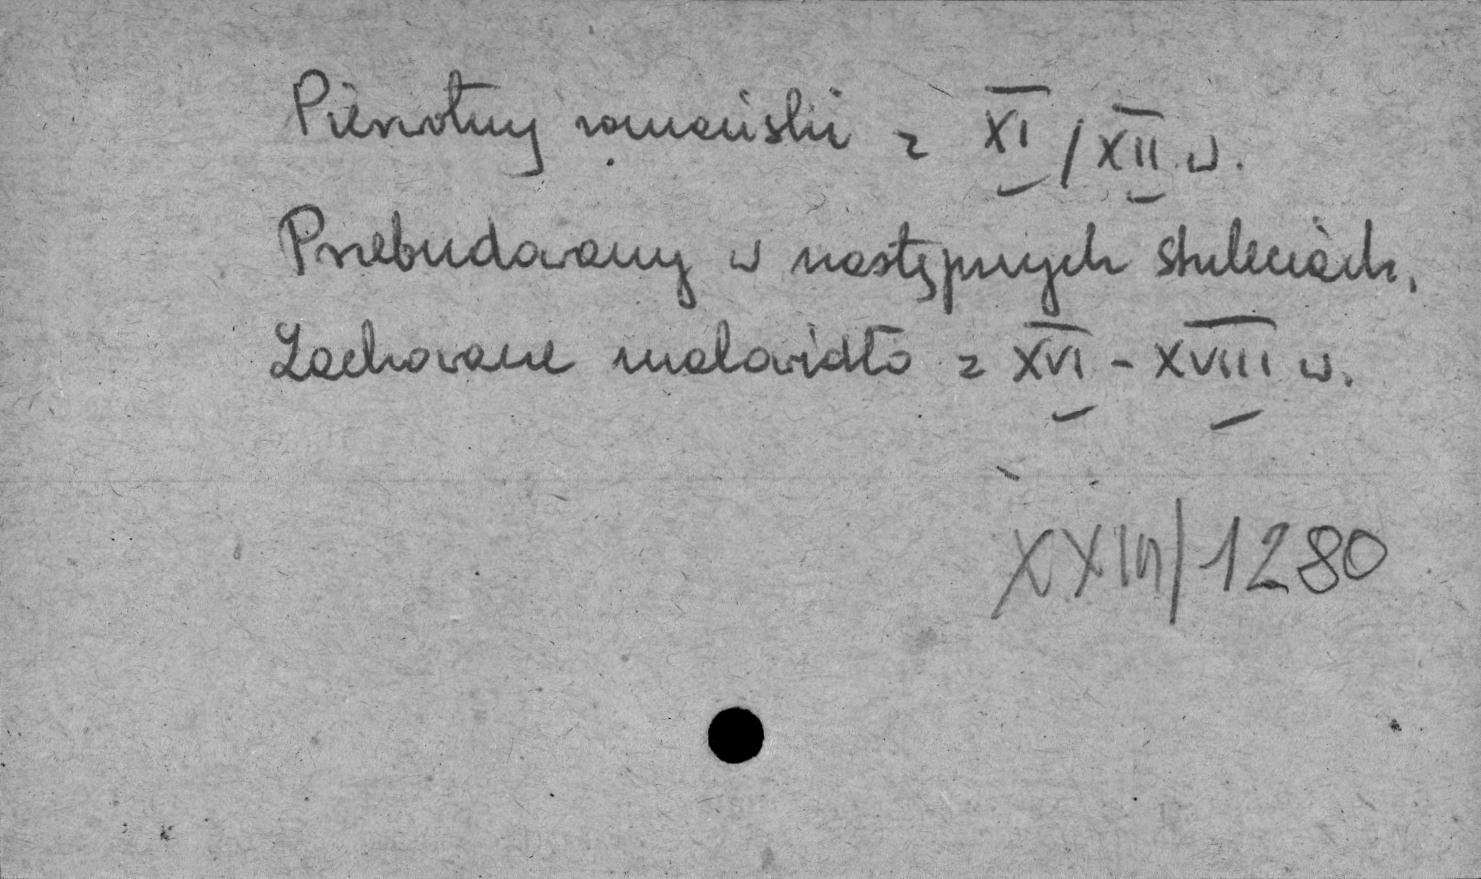 Pierwotny romański z XI / XII w.
Przebudowany w następnych stuleciach.
Zachowane malowidło z XVI - XVIII w.
XXIII/1280